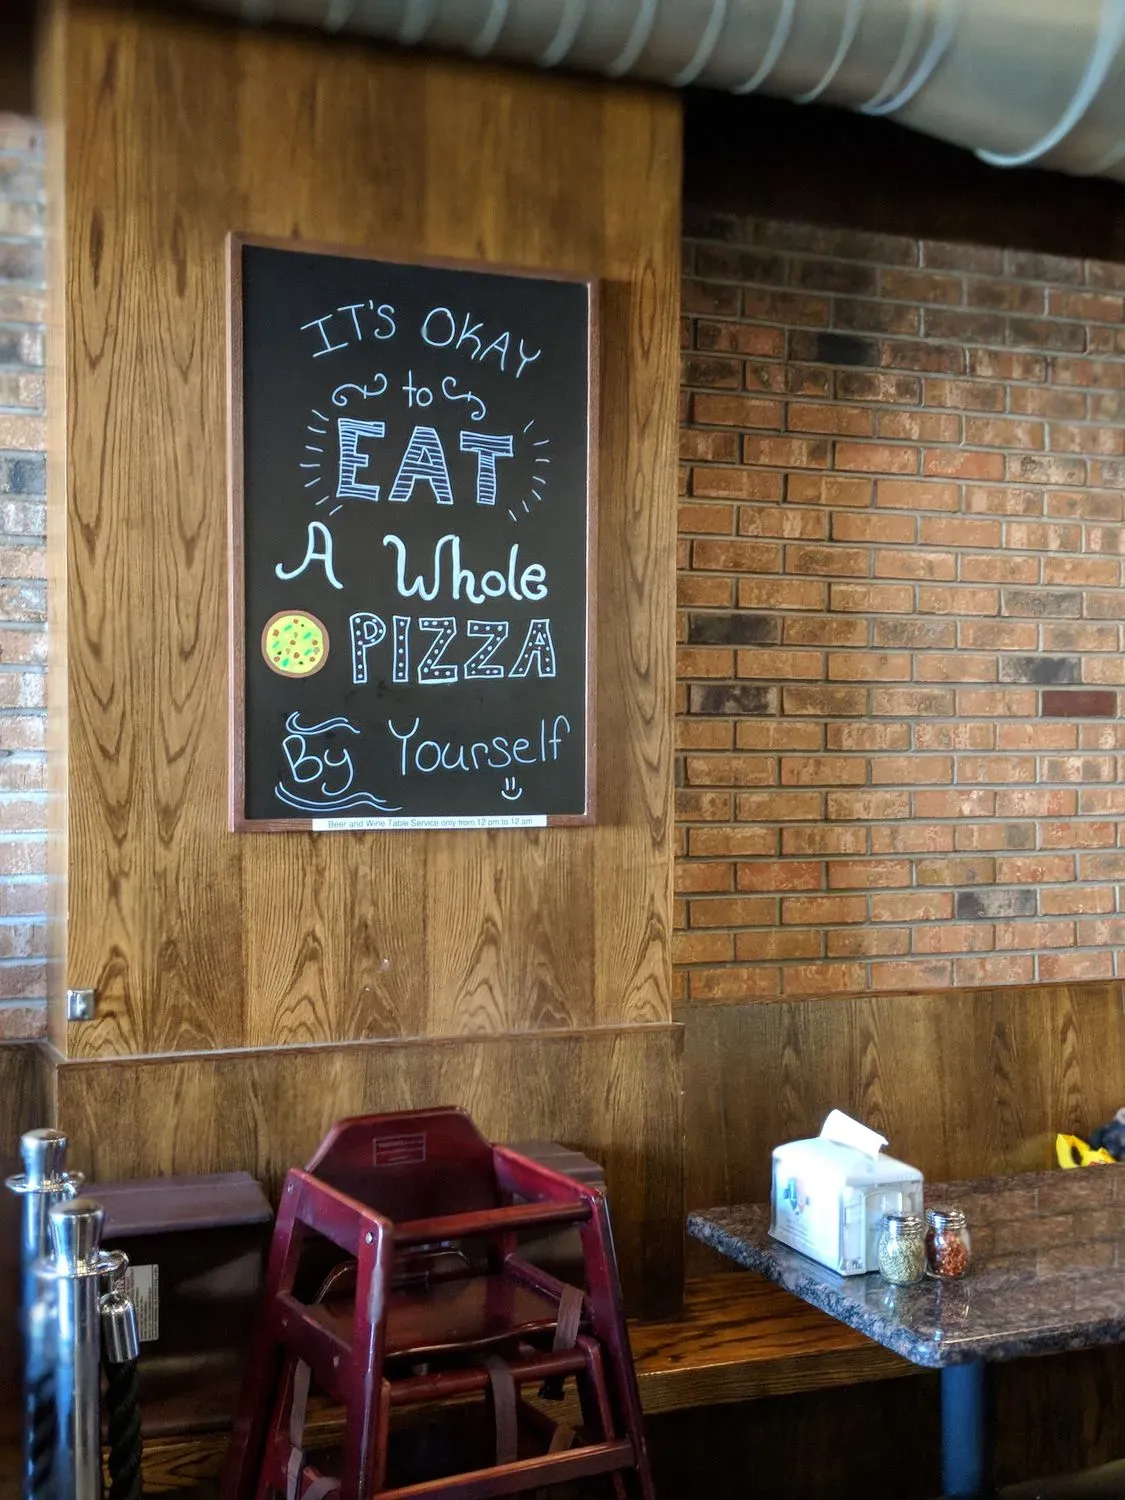 IT'S OKAY
to
EAT
A Whole
PIZZA
By Yourself
Beer and Wine Table Service only from 12 pm to 12 am